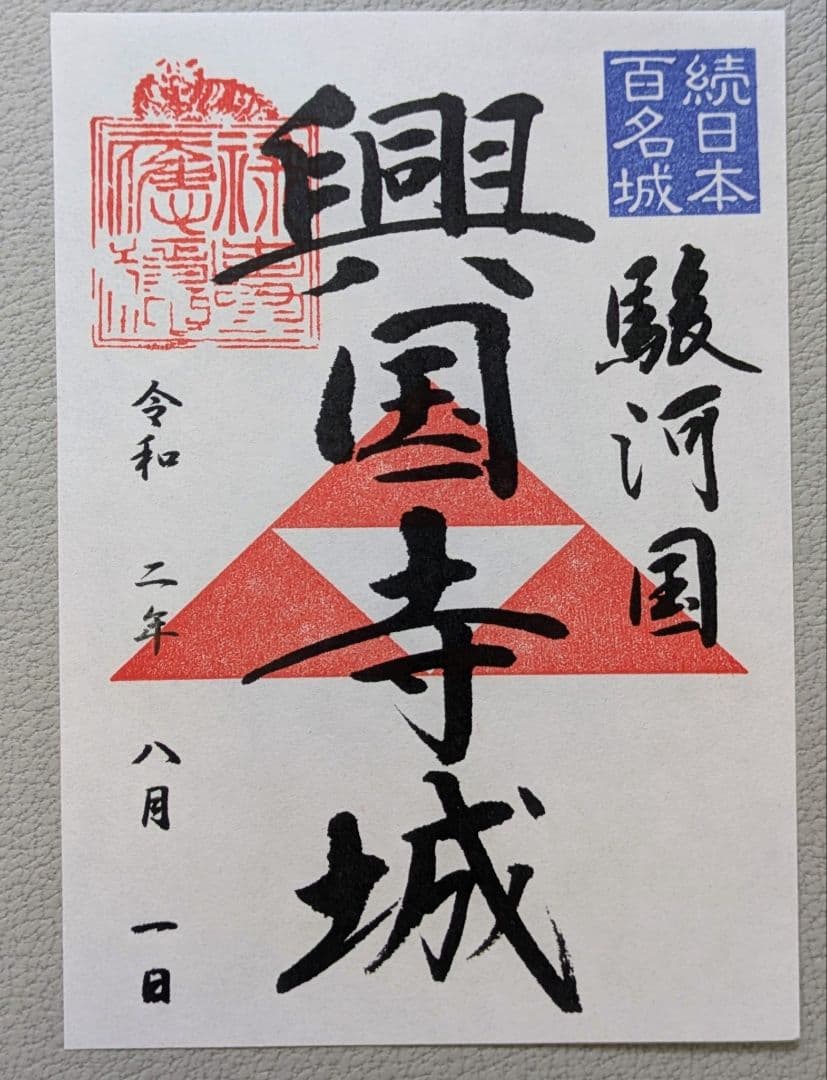 続日本
百名城
駿河国
興国寺城
令和 二年 八月 一日